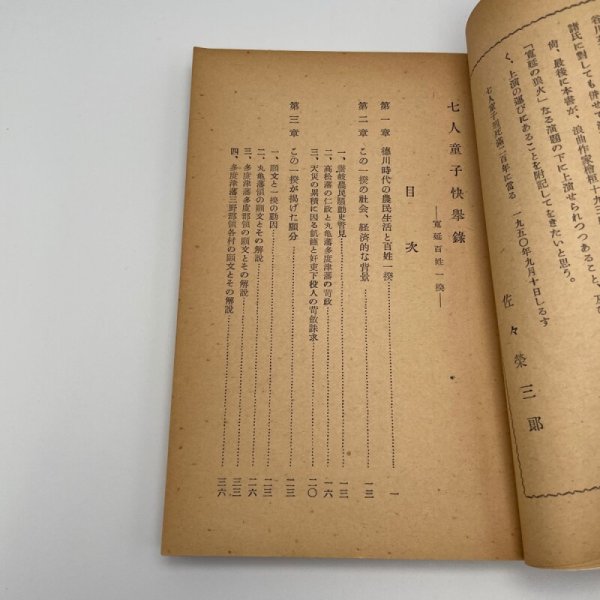 諸氏に対しても併せて
尚、最後に本書が、浪曲作家
「寛延の狼火」なる演題の下に上演せられつつあること、
く、上演の運びにあることを附記しておきたいと思う。
七人童子刑死満二百年に當る 一九五〇年九月十日しるす
佐々榮三郎
七人童子快擧錄
―寛延百姓一揆―
目次
第一章 徳川時代の農民生活と百姓一揆 一
第二章 この一揆の社会、経済的な背景 一三
一、讃岐農民騒動史管見 一三
二、高松藩の仁政と丸亀藩多度津藩の苛政 一六
三、天災の累積に因る飢饉と奸吏下役人の苛斂誅求 二〇
第三章 この一揆が掲げた願分 二三
一、願文と一揆の動因 二三
二、丸亀藩領の願文とその解説 二六
三、多度津藩多度郡領の願文とその解説 三三
四、多度津藩三野郡領各村の願文とその解説 三六